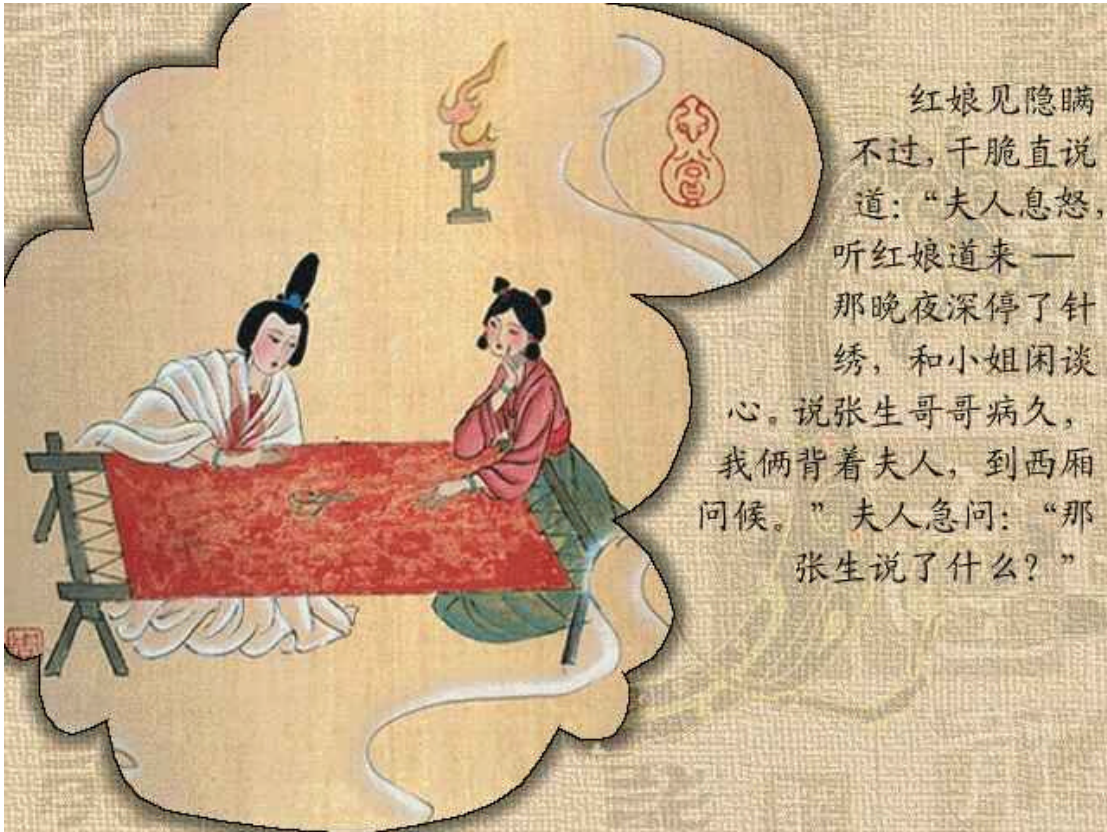 红娘见隐瞒
不过，干脆直说
道：“夫人息怒，
听红娘道来 —
那晚夜深停了针
绣，和小姐闲谈
心。说张生哥哥病久，
我俩背着夫人，到西厢
问候。”夫人急问：“那
张生说了什么？”